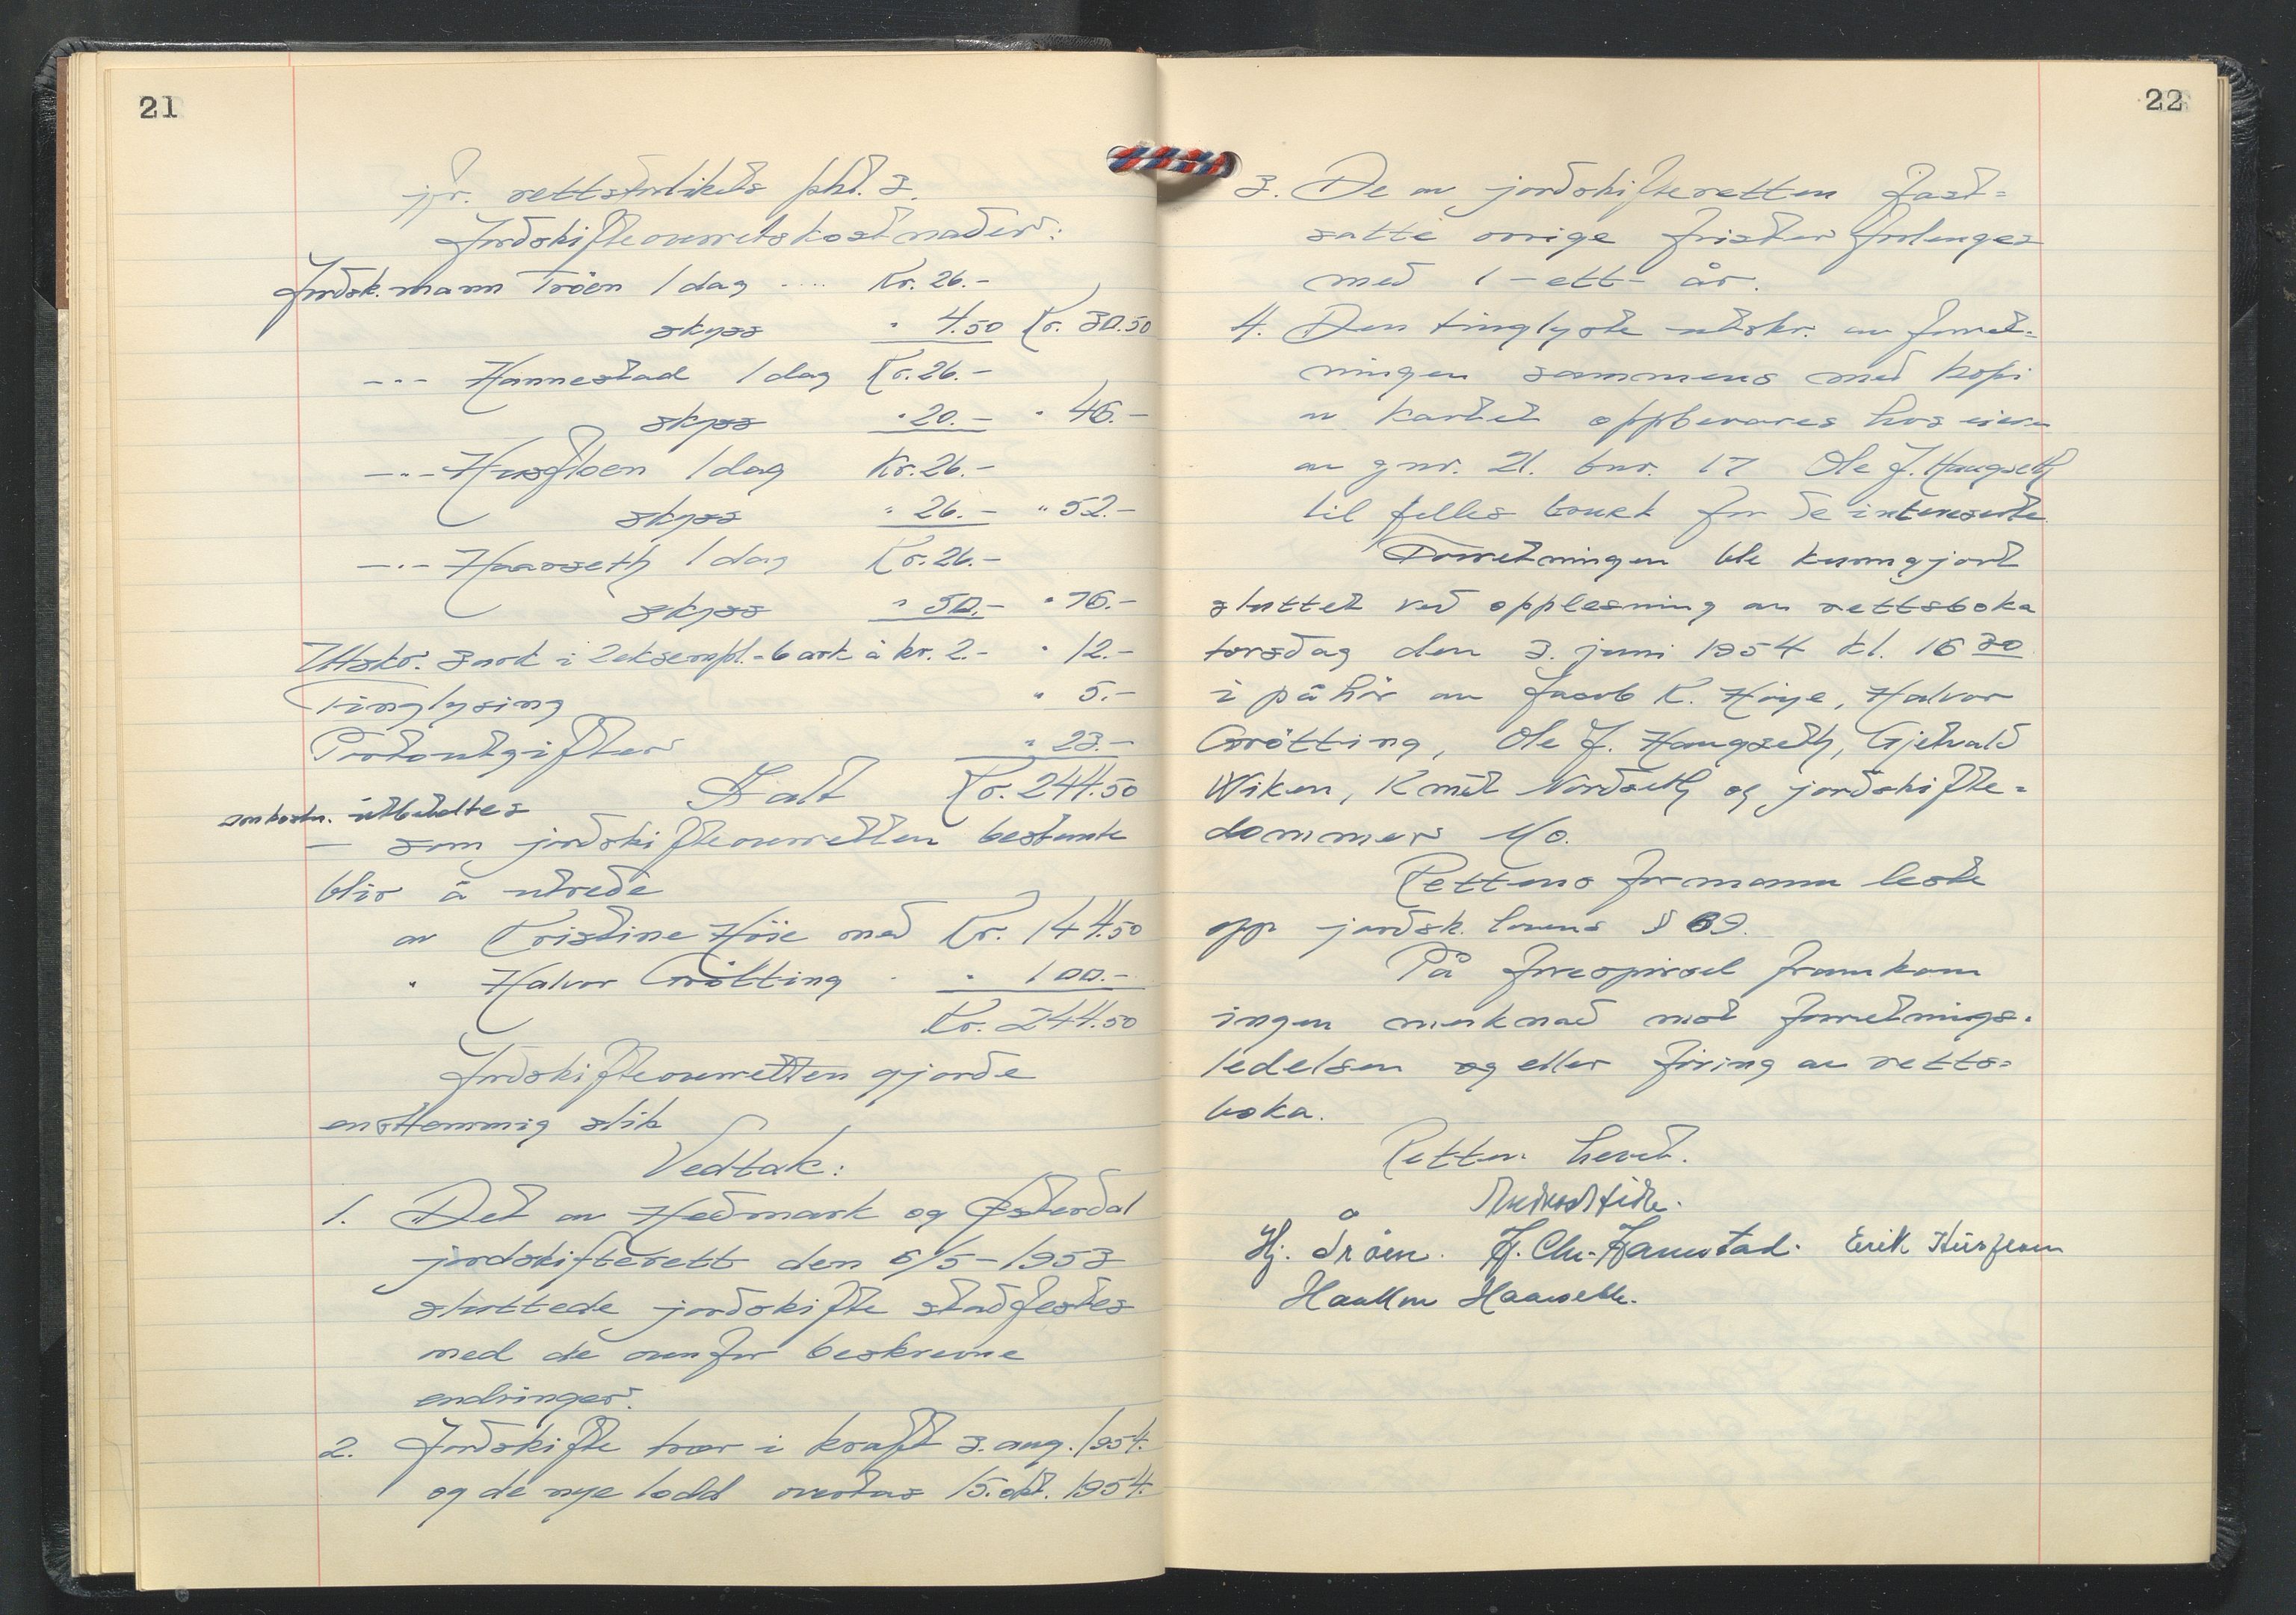 21
jfr. rettsforlikets pkt. 3.
Jordskifteoverretskostnader:
Jordsk.mann Tröen 1 dag .... Kr. 26.-
skyss " 4.50 Kr. 30.50
-"- Hannestad 1 dag Kr. 26.-
skyss " 20.- " 46.-
-"- Husfloen 1 dag Kr. 26.-
skyss " 26.- " 52.-
-"- Haarseth 1 dag Kr. 26.-
skyss " 50.- " 76.-
Utskr. 3 ark i 2 eksempl. = 6 ark à kr. 2.- " 12.-
Tinglysing " 5.-
Portoutgifter " 23.-
I alt Kr. 244.50
omkostn. utbetaltes
— som jordskifteoverretten bestemte
blir å utrede
av Kristine Höie med Kr. 144.50
" Halvor Grötting " " 100.-
Kr. 244.50
Jordskifteoverretten gjorde
enstemmig slik
Vedtak:
1. Det av Hedmark og Østerdal
jordskifterett den 6/5-1953
sluttede jordskifte stadfestes
med de ovenfor beskrevne
endringer.
2. Jordskifte trer i kraft 3. aug. 1954.
og de nye lodd overtas 15. okt. 1954.
22
3. De av jordskifteretten fast=
satte övrige frister forlenges
med 1-ett- år.
4. Den tinglyste utskr. av forret=
ningen sammens med kopi
av kartet oppbevares hos eieren
av gnr. 21. bnr. 17 Ole J. Haugseth
til felles bruk for de interesserte.
Forretningen ble kunngjort
sluttet ved opplesning av rettsboka
torsdag den 3. juni 1954 kl. 16 30
i påhör av Jacob K. Höye, Halvor
Grötting, Ole J. Haugseth, Gjetvald
Wiken, Knut Nordseth og jordskifte=
dommer Mo.
Rettens formann leste
opp jordsk. lovens § 69.
På forespörsel framkom
ingen merknad mot forretnings=
ledelsen og eller föring av retts=
boka.
Retten hevet.
Hj. Tröen. Erik Husfloen
Haakon Haarseth.